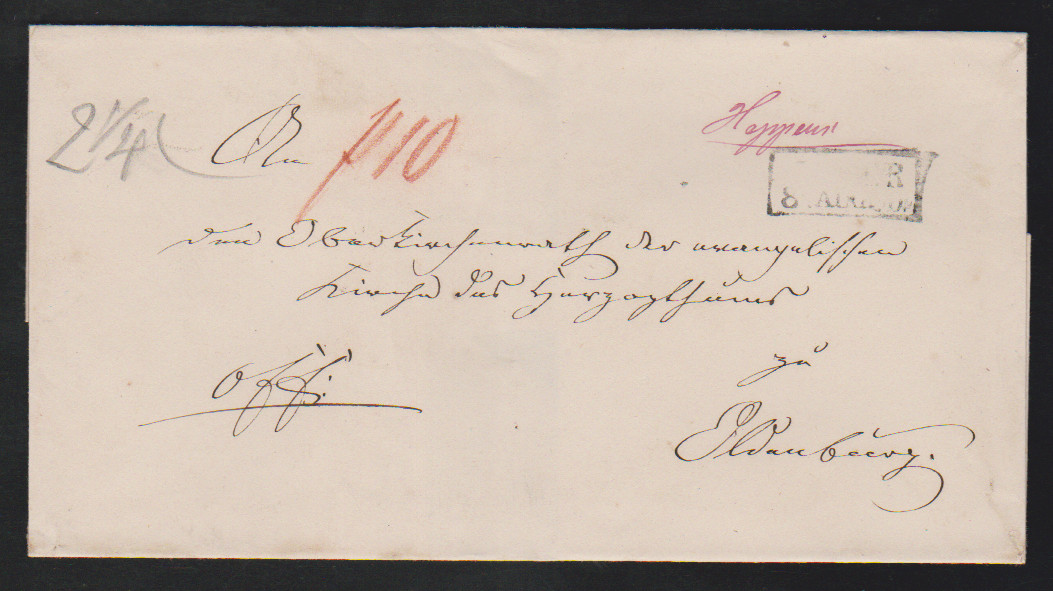 2 1/4
An
110
Heppens
den Oberkirchenrath der evangelischen
Kirche des Herzogthums
offi:
zu
Oldenburg.